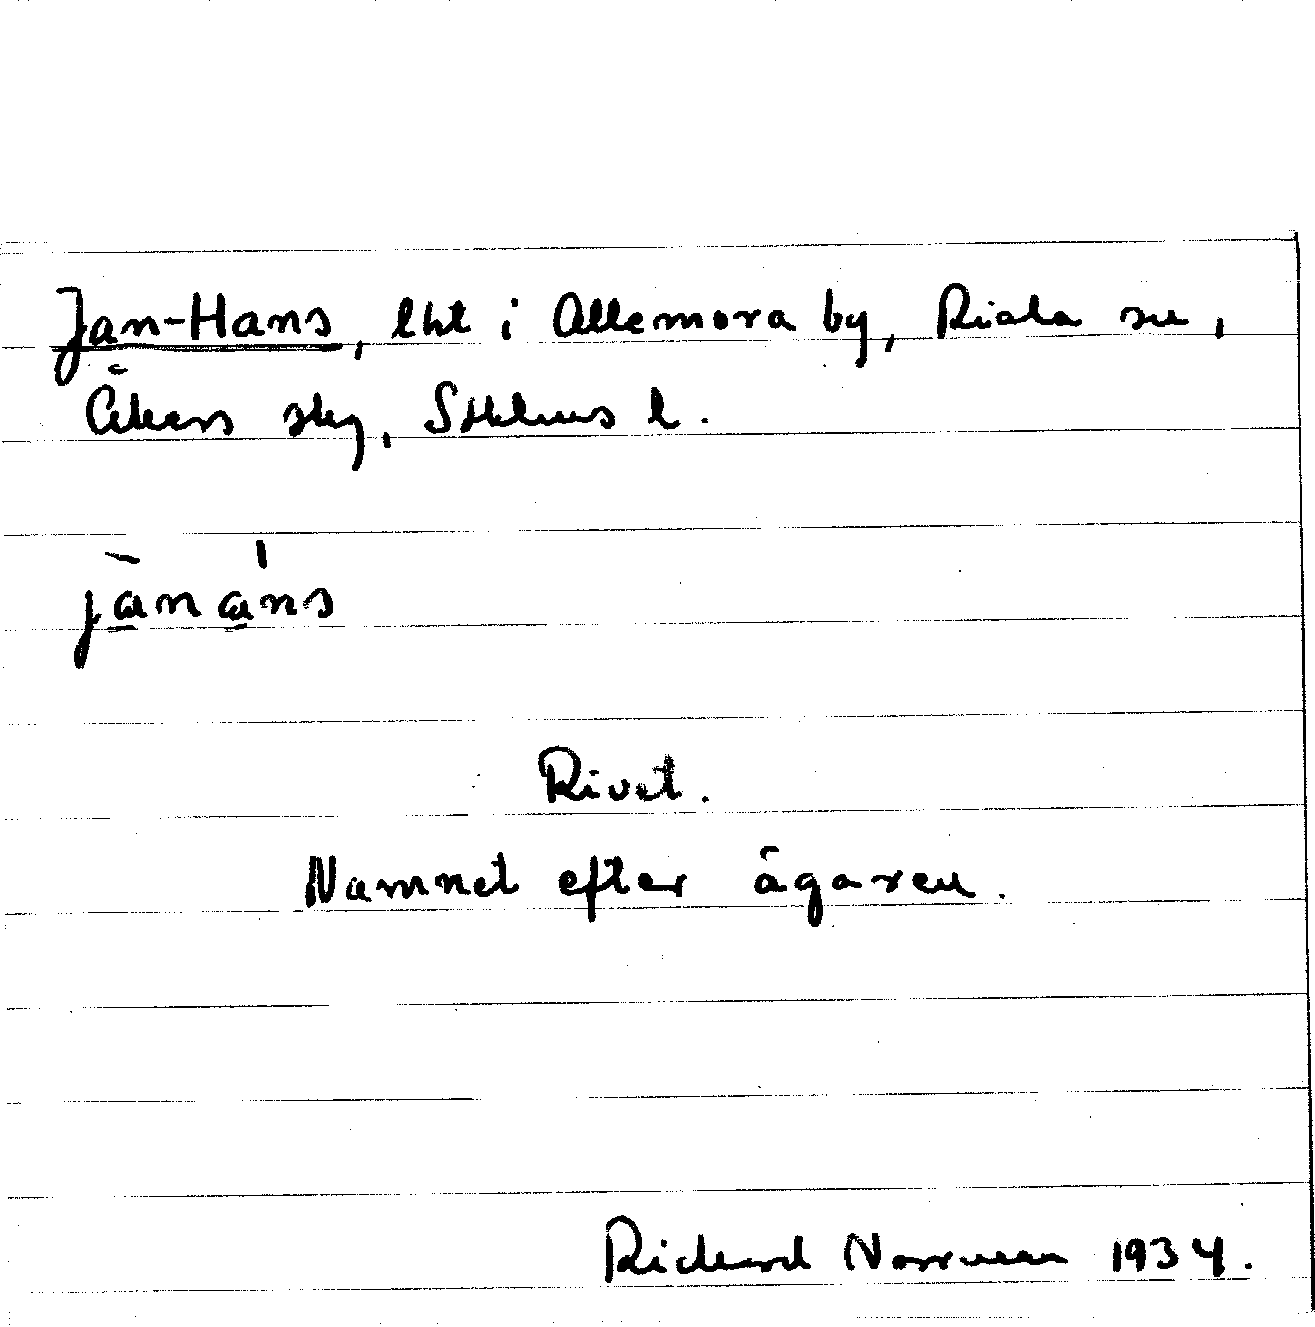 Jan-Hans, lht i Allemora by, Riala sn,
Åkers skg, Sthlms l.
jànáns
Rivet.
Namnet efter ägaren.
Richard Norrman 1934.